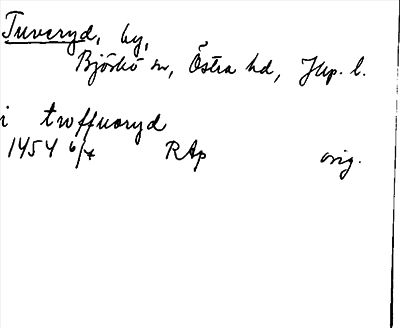 Tuveryd, by,
Björkö sn, Östra hd, Jkp. l.
i twffuoryd
1454 6/4 RAp orig.